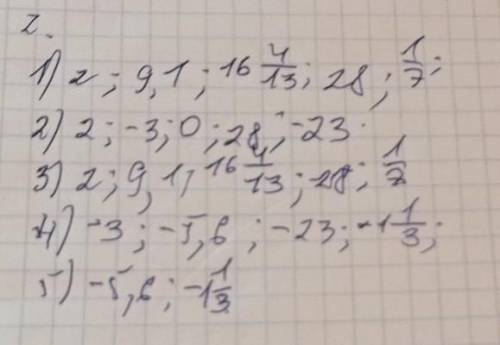 2.
1) 2; 9,1; 16 4/13; 28; 1/7;
2) 2; -3; 0; 28; -23.
3) 2; 9,1; 16 4/13; 28; 1/7
4) -3; -5,6; -23; -1 1/3;
5) -5,6; -1 1/3